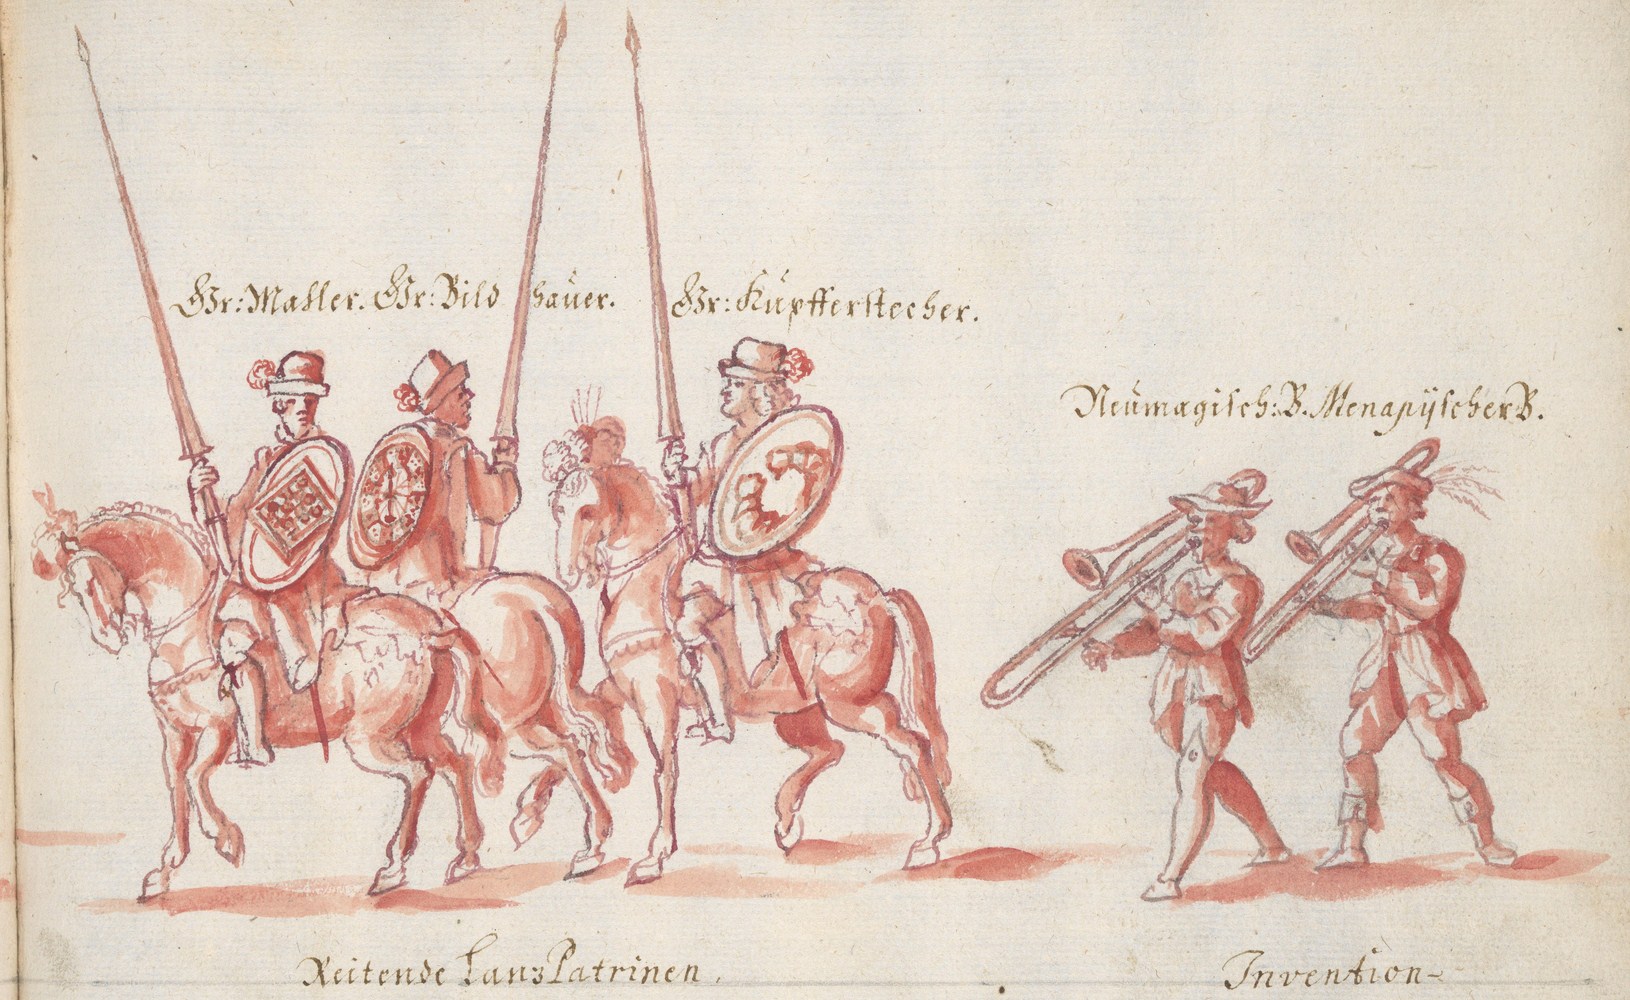 Hr: Mahler. Hr: Bildhaüer. Hr: Küpfferstecher.
Neümagisch: B. Menapÿscher B.
Reitende Lanz Patrinen.
Invention-